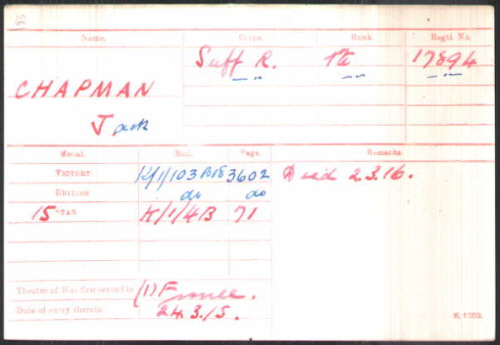 Name. Corps. Rank Regtl. No.
Suff R. Pte 17894
CHAPMAN — " — — " — — " —
Jack
Medal. Roll. Page. Remarks.
VICTORY K/1/103 B18 3602 Died 2.3.16.
BRITISH do do
15 STAR K/1/4B 71
Theatre of War first served in (1) France.
Date of entry therein 24.3.15.
K. 1380.